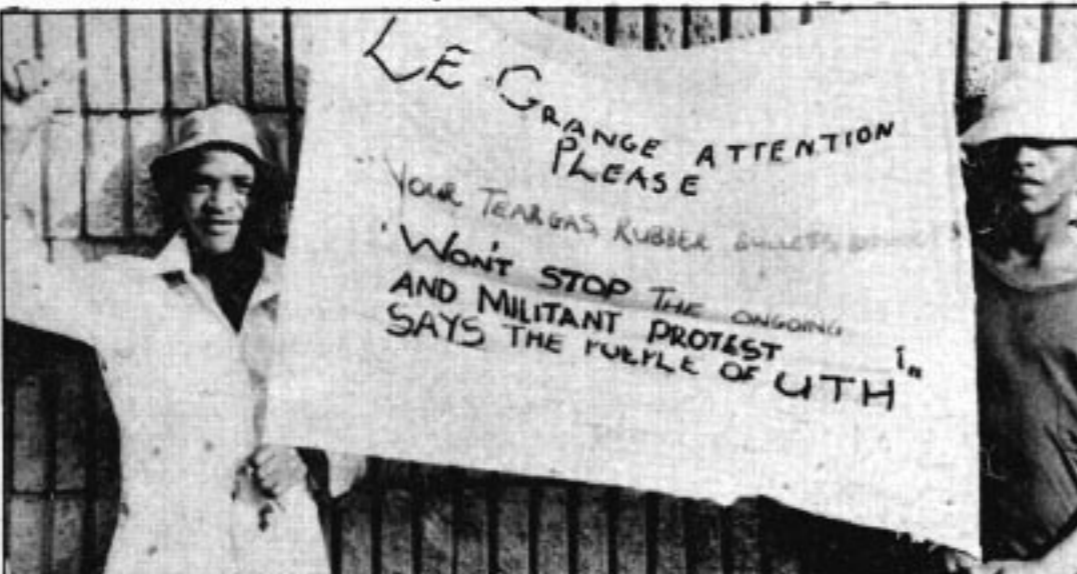 LE GRANGE ATTENTION
PLEASE
"YOUR TEARGAS RUBBER BULLETS
WON'T STOP THE ONGOING
AND MILITANT PROTEST in
SAYS THE PEOPLE OF UTH"